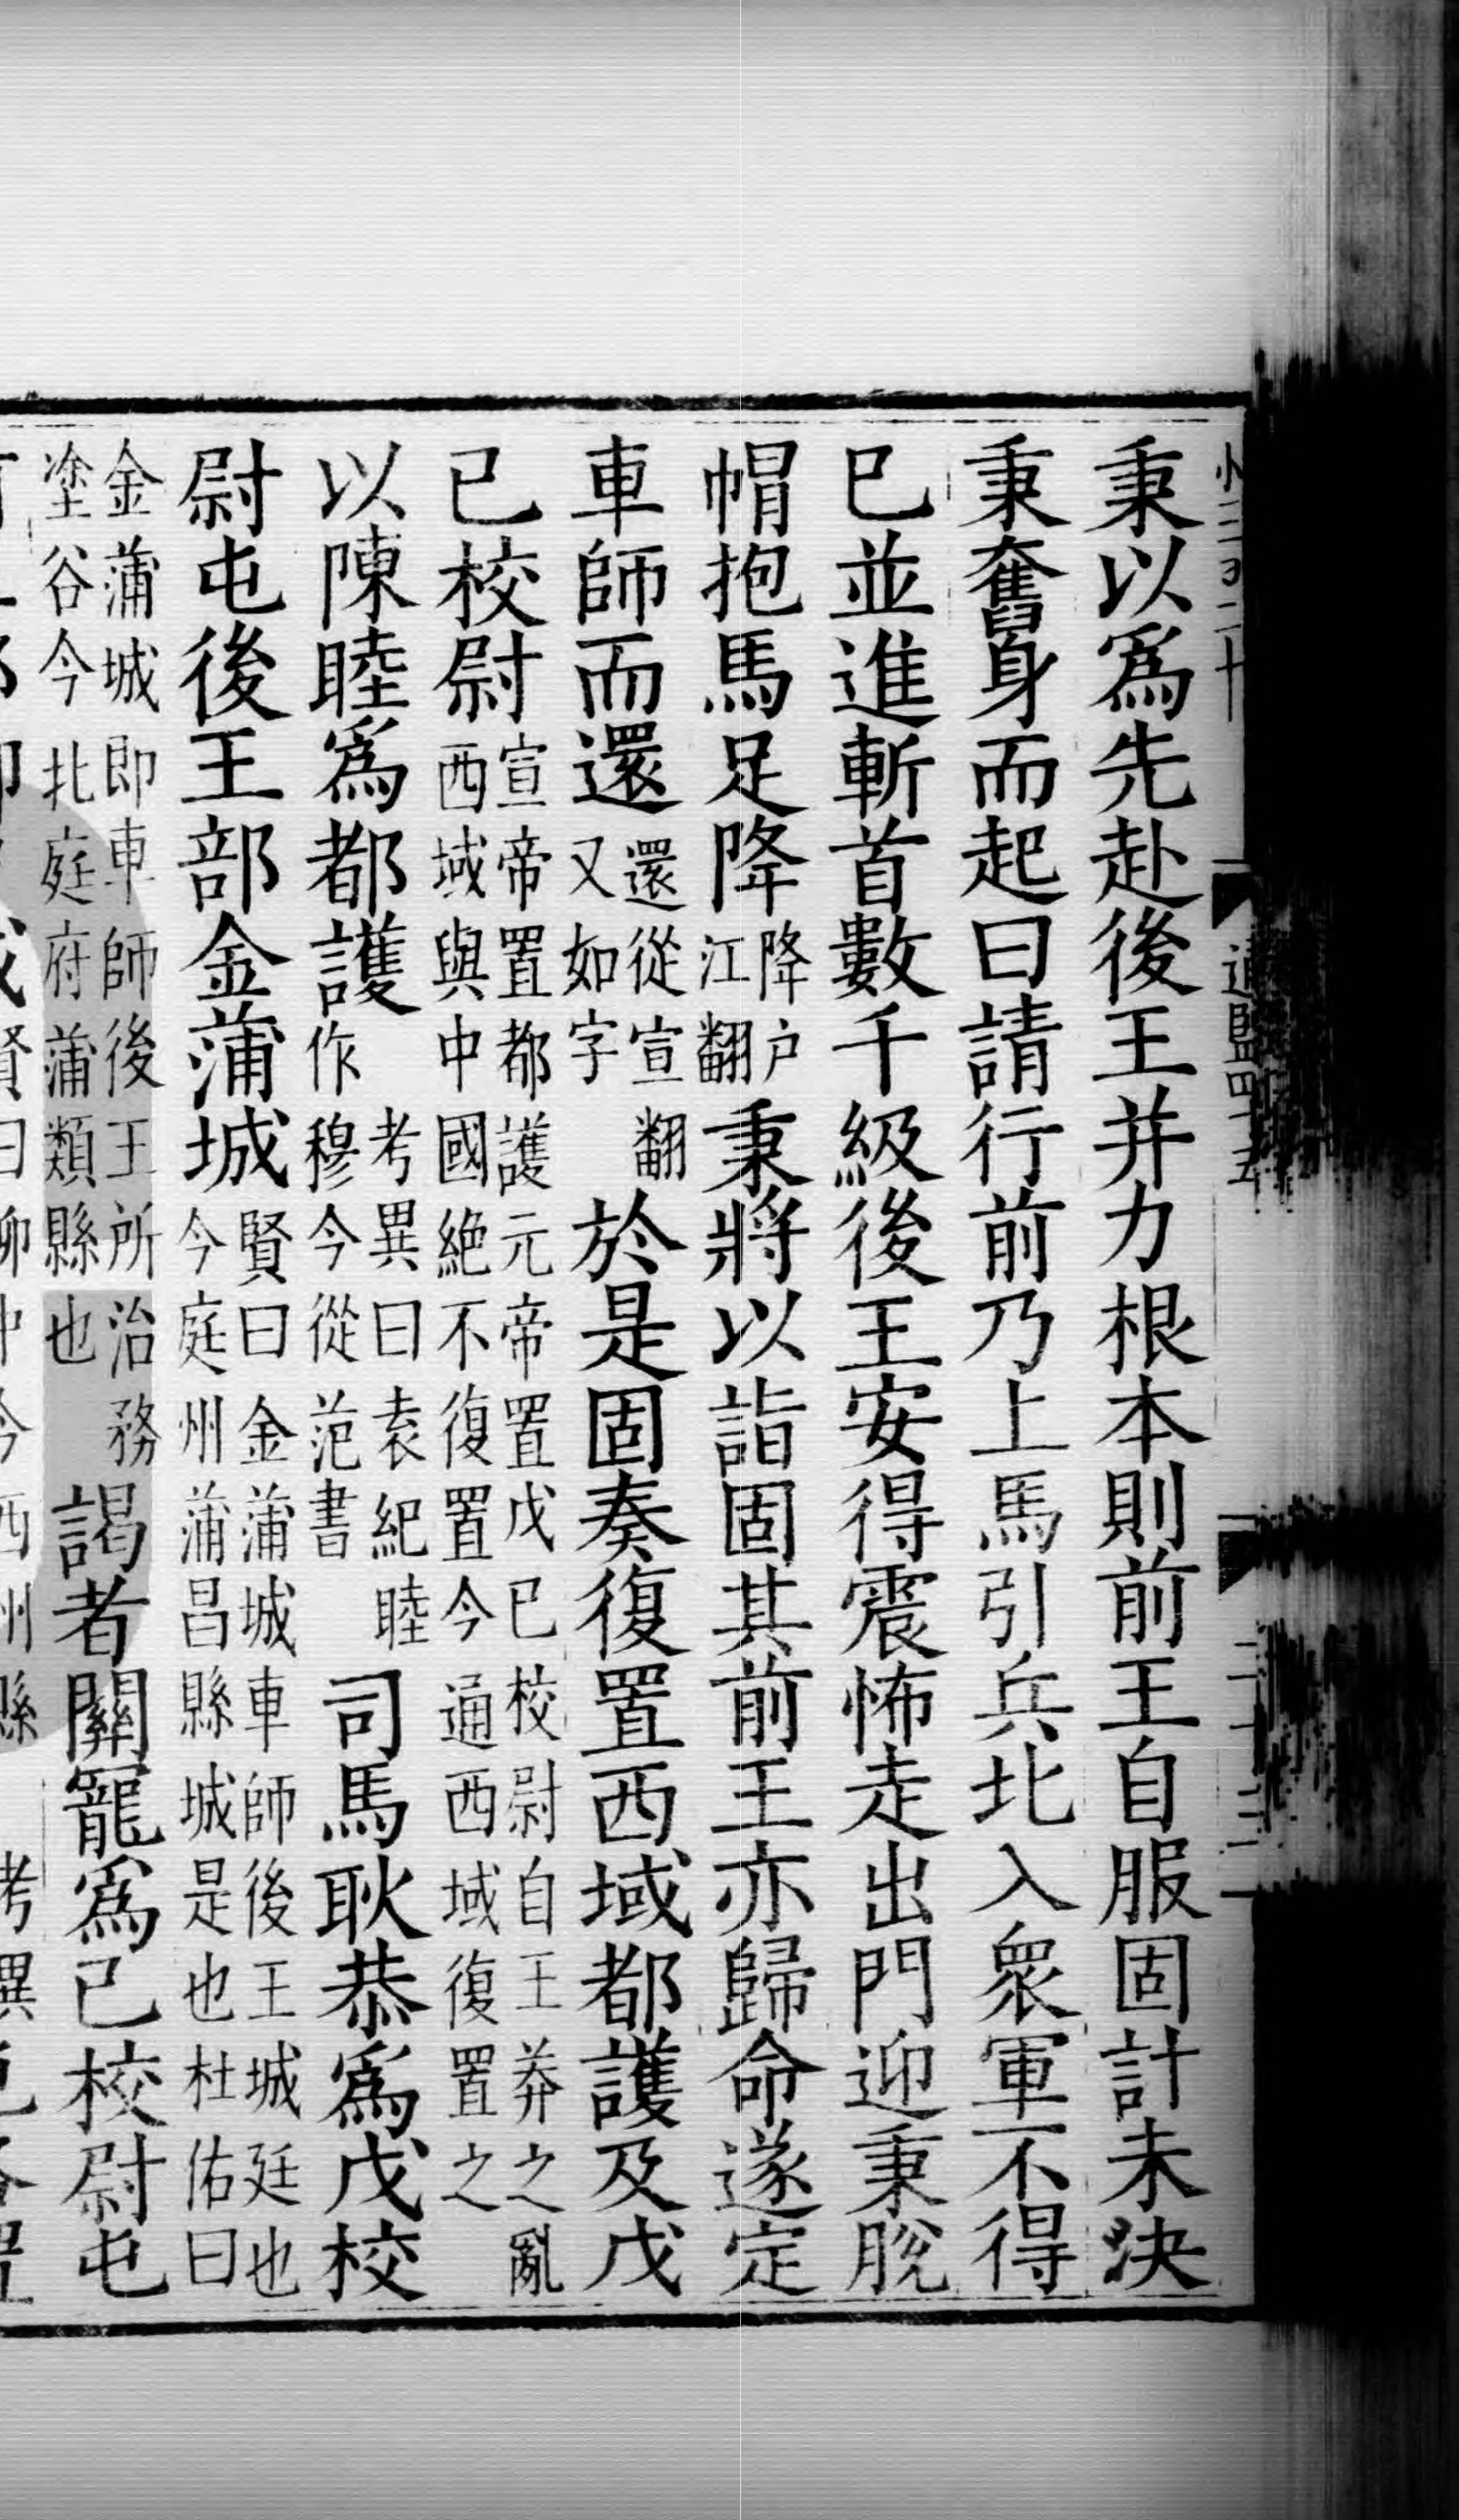 秉以爲先赴後王并力根本則前王自服固計未決
秉奮身而起曰請行前乃上馬引兵北入衆軍不得
已並進斬首數千級後王安得震怖走出門迎秉脫
帽抱馬足降降户江翻秉將以詣固其前王亦歸命遂定
車師而還還從宣翻又如字於是固奏復置西域都護及戊
已校尉宣帝置都護元帝置戊已校尉自王莽之亂西域與中國絶不復置今通西域復置之
以陳睦爲都護考異曰袁紀睦作穆今從范書司馬耿恭爲戊校
尉屯後王部金蒲城賢曰金蒲城車師後王城廷也今庭州蒲昌縣城是也杜佑曰
金蒲城即車師後王所治務塗谷今北庭府蒲類縣也謁者關寵爲已校尉屯